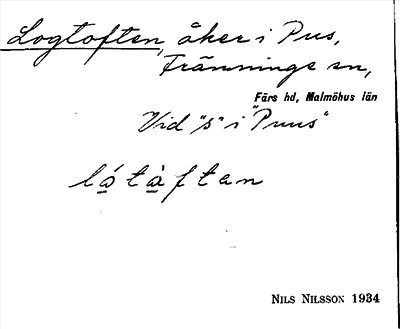 Logtoften, åker i Pus,
Tränninge sn,
Färs hd, Malmöhus län
Vid "s" i "Puus"
látàftan
NILS NILSSON 1934